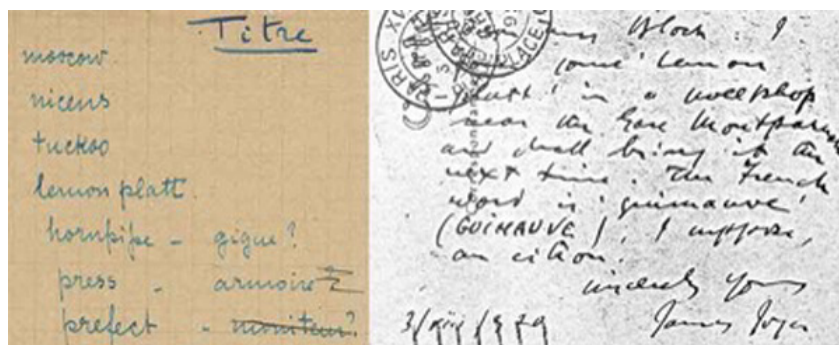 Titre
moscow
nicens
tuckoo
lemon platt
hornpipe - gigue?
press - armoire
prefect - moniteur?
PARIS XV
Bloch. I
some 'lemon
platt' in a sweetshop
near the Gare Montparn
and shall bring it the
next time. The French
word is 'guimauve'
(GUIMAUVE), I suppose,
au citron.
sincerely yours
James Joyce